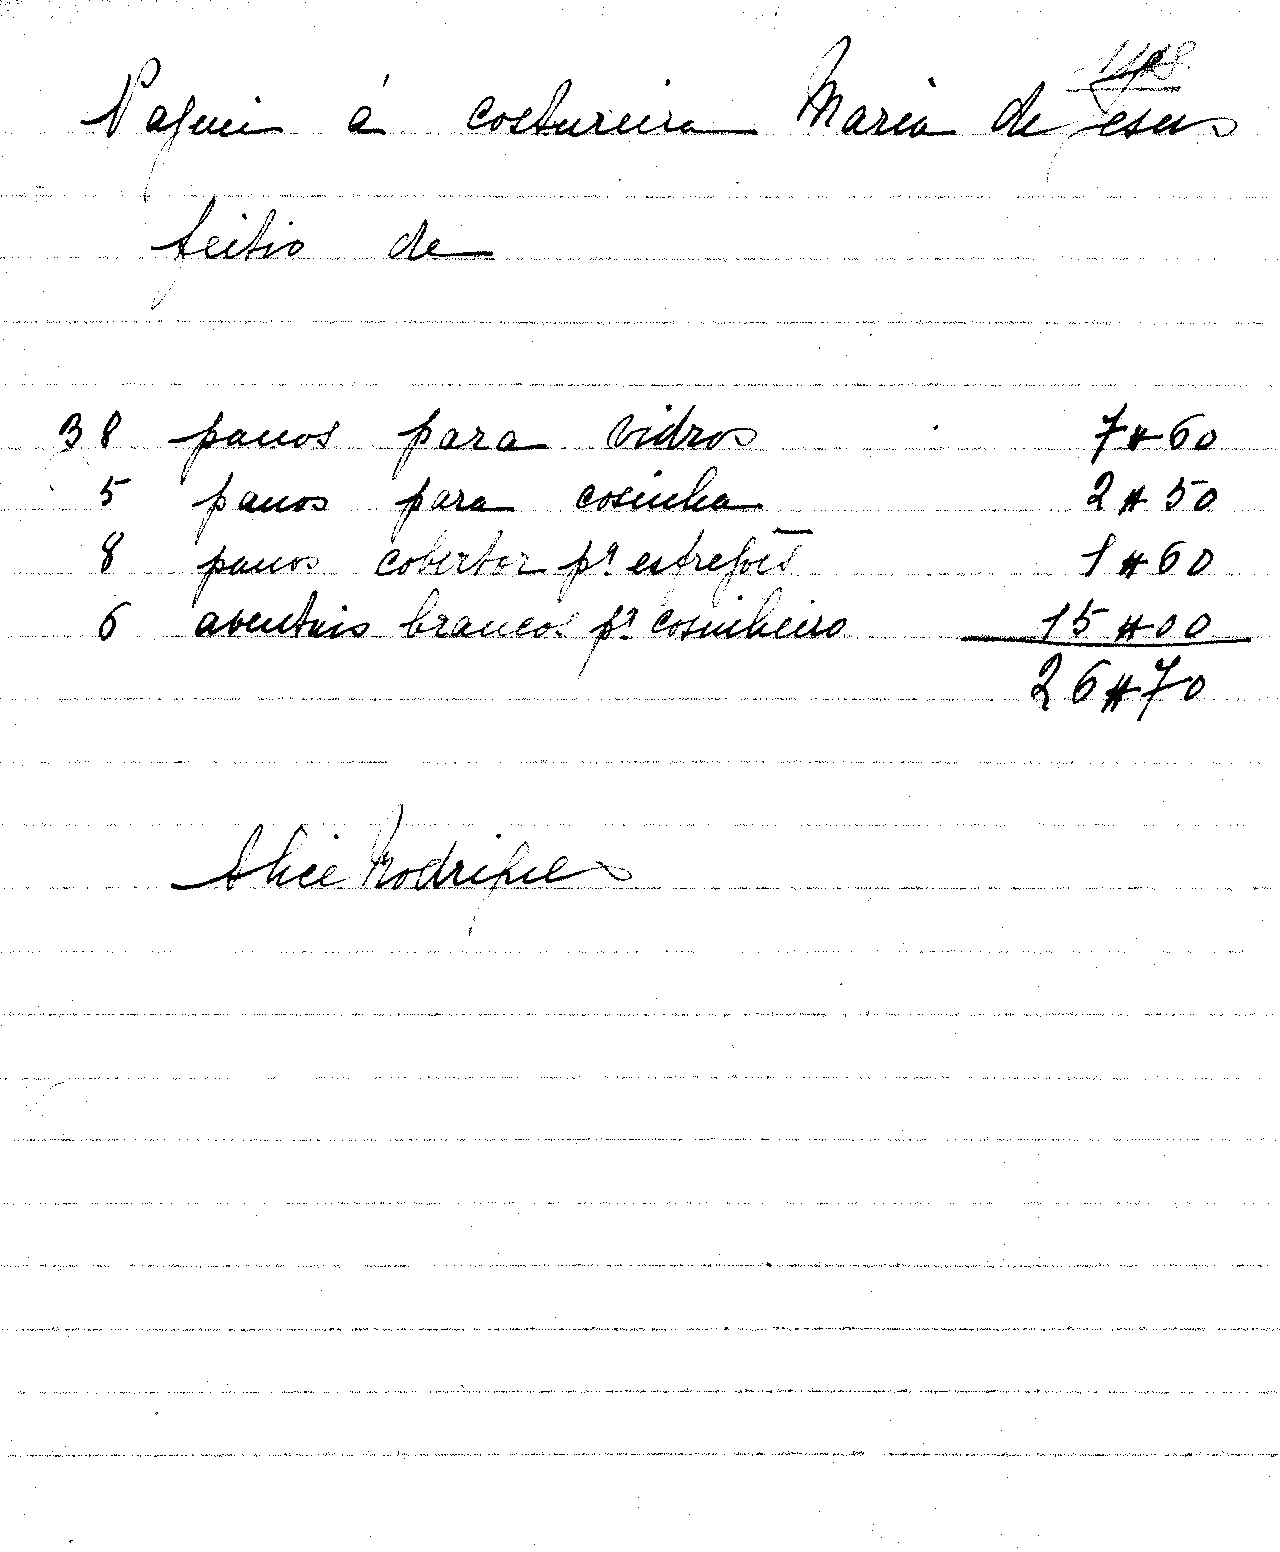 Paguei á costureira Maria de Jesus
feitio de
38 panos para vidros 7$60
5 panos para cosinha 2$50
8 panos cobertor pª esfregões 1$60
6 aventais brancos pª cosinheiro 15$00
26$70
Alice Rodrigues